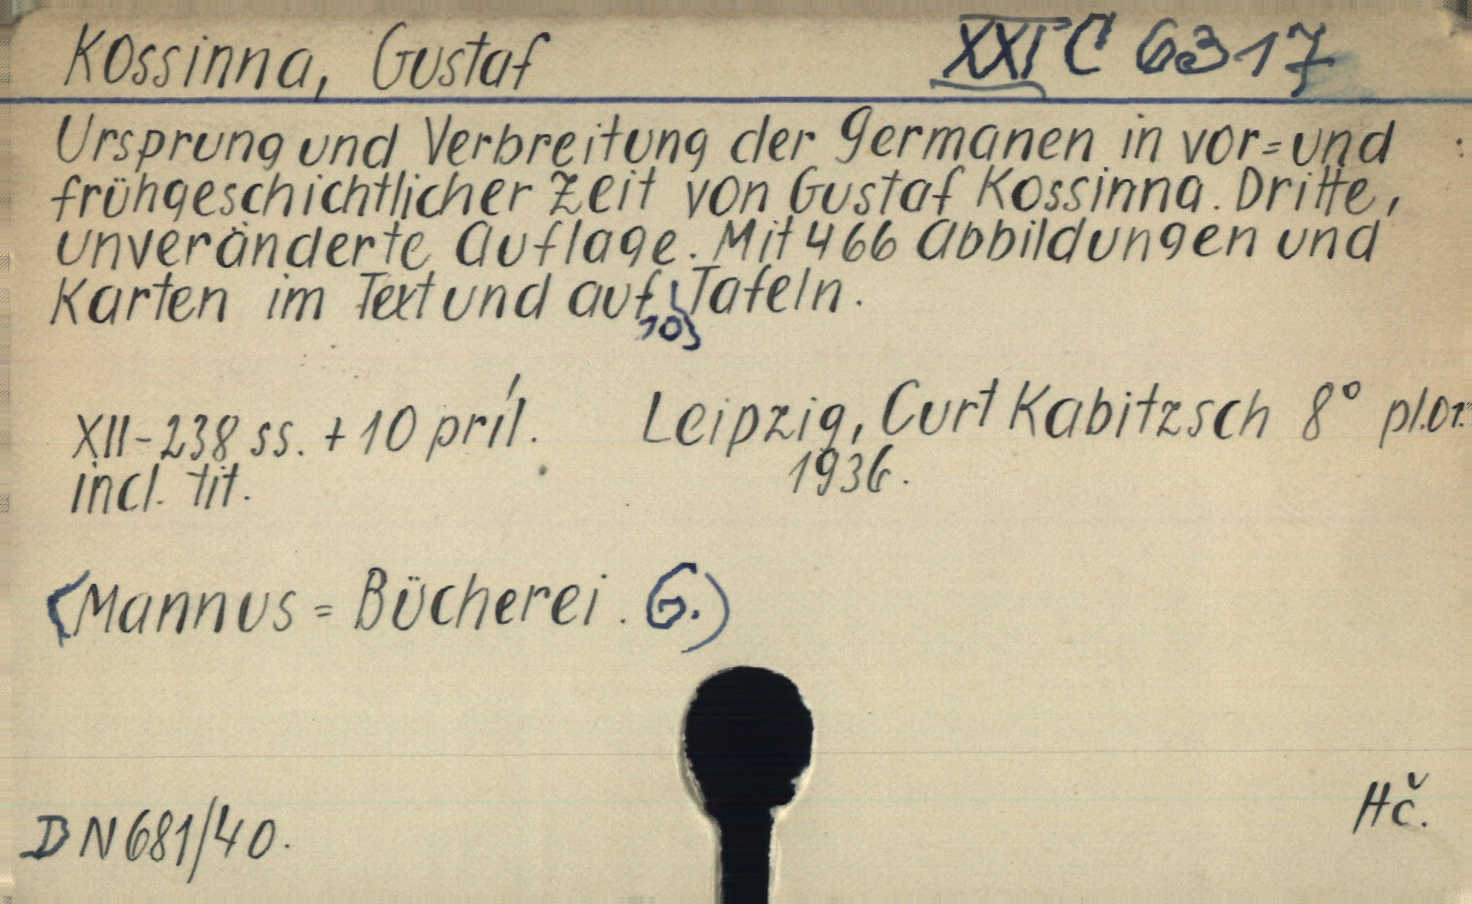 Kossinna, Gustaf XXI C 6317
Ursprung und Verbreitung der Germanen in vor= und
frühgeschichtlicher Zeit von Gustaf Kossinna. Dritte,
unveränderte Auflage. Mit 466 Abbildungen und
Karten im Text und auf 10 Tafeln.
XII-238 ss. + 10 príl. Leipzig, Curt Kabitzsch 8° pl.or.
incl. tit. 1936.
(Mannus = Bücherei. 6.)
Hč.
DN 681/40.